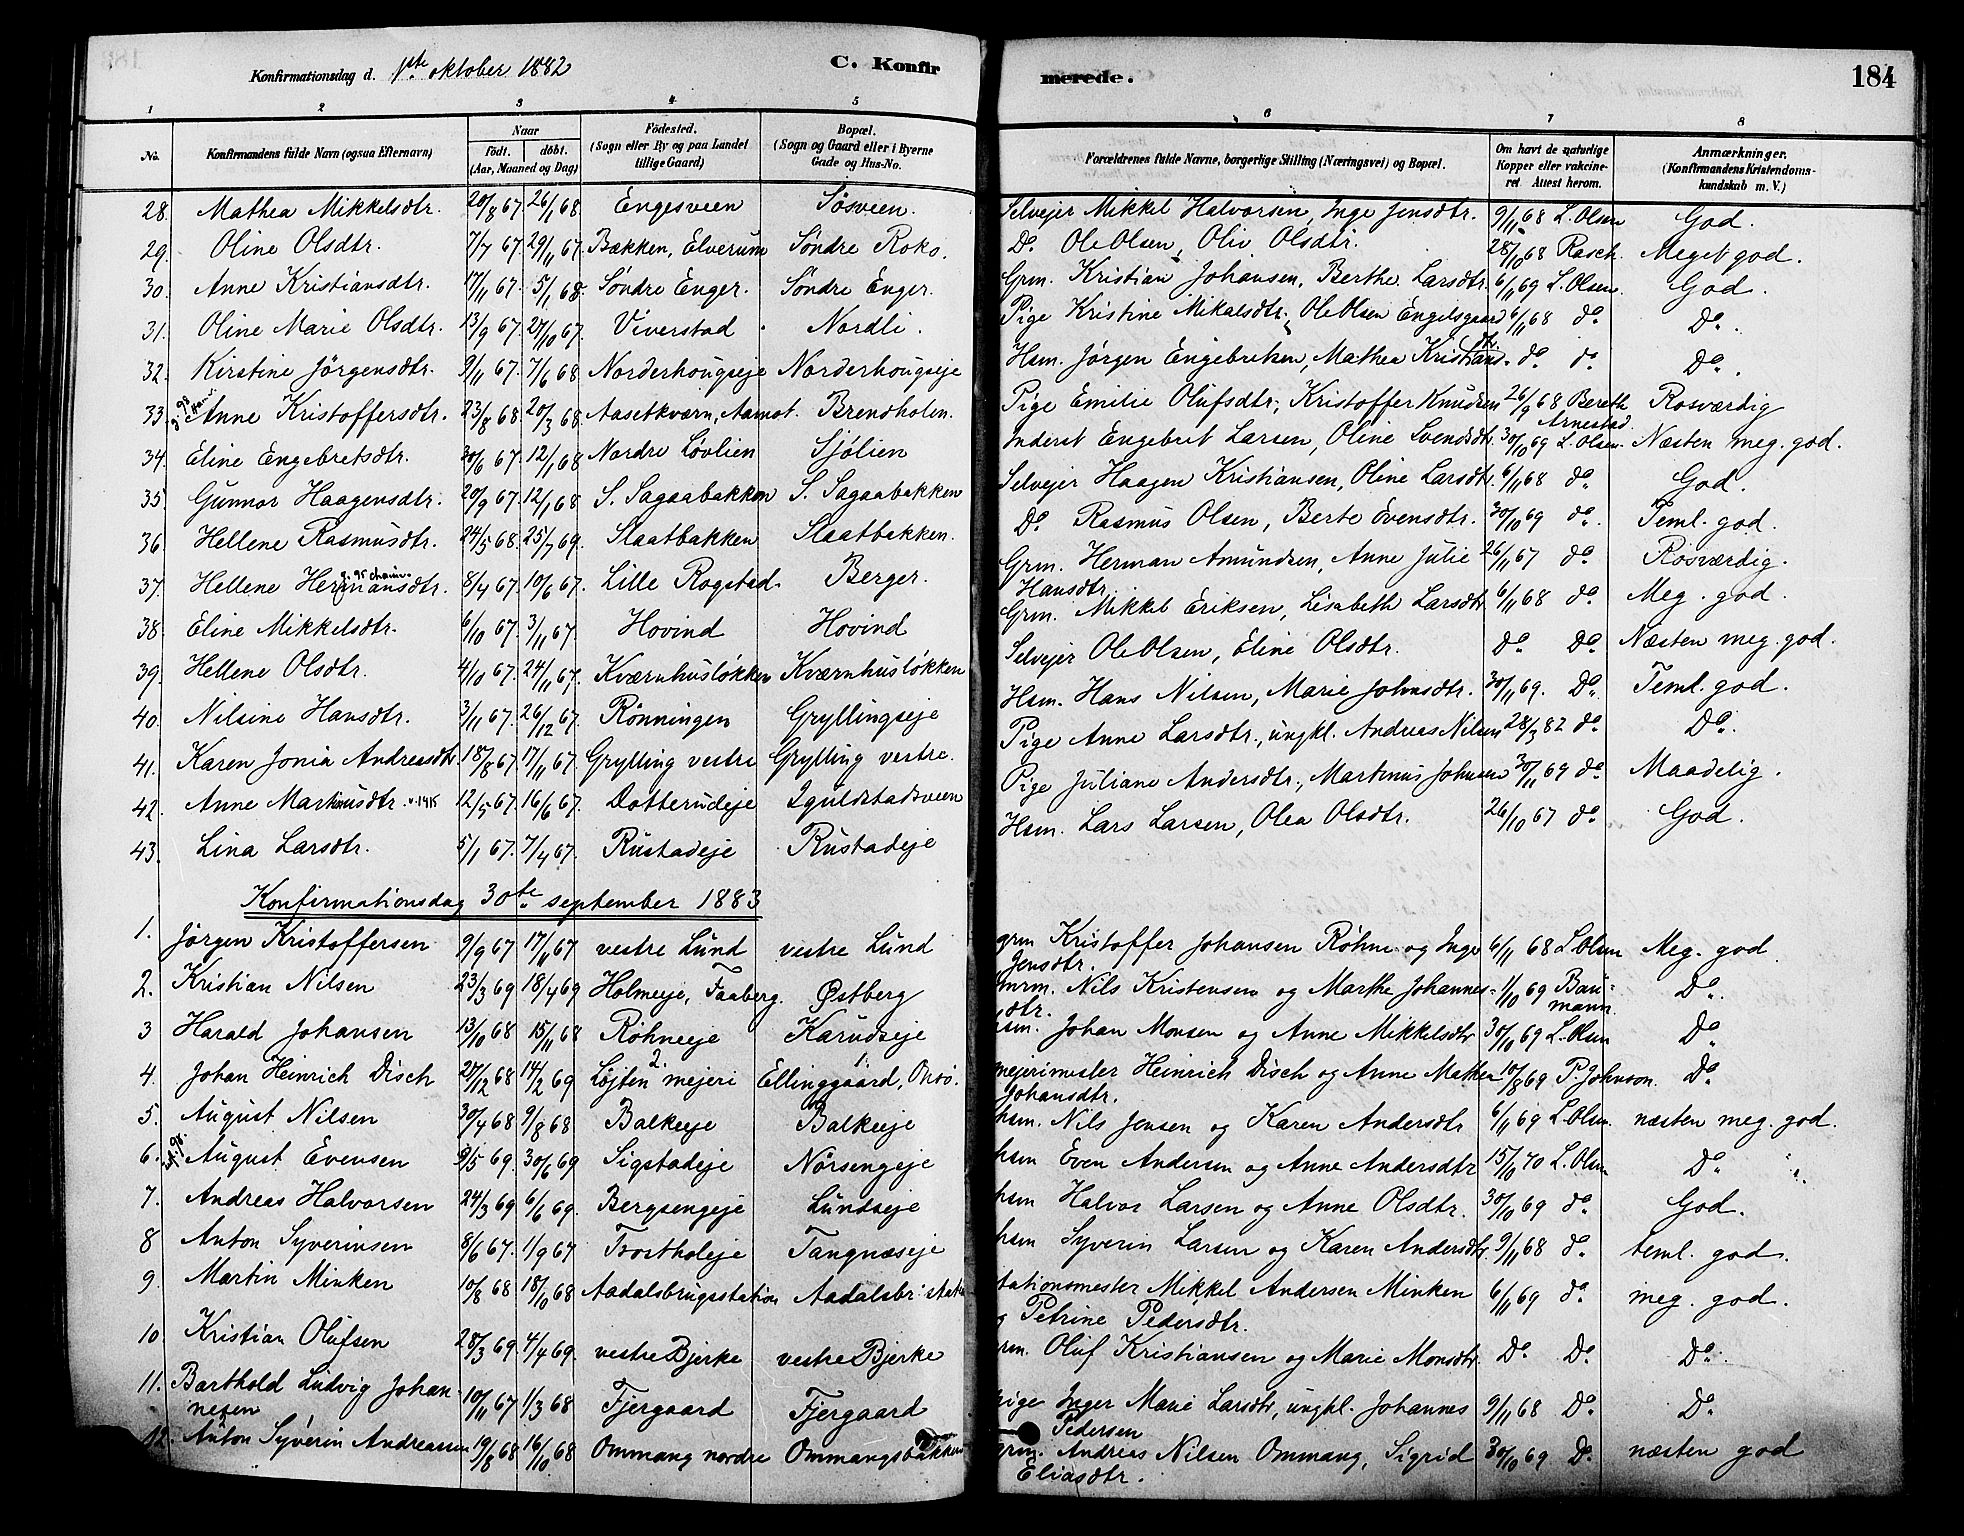 Konfirmationsdag d. 1ste oktober 1882 C. Konfirmerede. 184
1 2 3 4 5 6 7 8
No. Konfirmandens fulde Navn (ogsaa Efternavn) Naar födt. döbt. (Aar, Maaned og Dag) Födested. (Sogn eller By og paa Landet tillige Gaard) Bopæl. (Sogn og Gaard eller i Byerne Gade og Hus-No. Forældrenes fulde Navne, borgerlige Stilling (Næringsvei) og Bopæl. Om havt de naturlige Kopper eller vakcineret. Attest herom. Anmærkninger. (Konfirmandens Kristendomskundskab m. V.)
28. Mathea Mikkelsdtr. 20/8 67. 26/1 68. Engesveen Søsveen. Selvejer Mikkel Halvorsen, Inge Jensdtr. 9/11 68 L. Olsen God.
29. Oline Olsdtr. 7/7 67. 29/11 67. Bækken, Elverum Søndre Roko. Do. Ole Olsen, Oliv Olsdtr. 28/10 68 Rasch. Meget god.
30. Anne Kristiansdtr. 17/11 67. 5/1 68. Søndre Enger. Søndre Enger. Grm. Kristian Johansen, Berthe Larsdtr. 6/11 69 L. Olsen. God.
31. Oline Marie Olsdtr. 13/9 67. 27/10 67. Viverstad Nordli. Pige Kristine Mikalsdtr., Ole Olsen Engelsgaard 6/11 68 do Do.
32. Kirstine Jörgensdtr. 9/11 67. 7/6 68 Norderhougseje Norderhougseje Hsm. Jørgen Engebretsen, Mathea Kristiansdtr. do do Do.
33. Anne Kristoffersdtr. 23/8 68. 20/3 68. Aasetkværn, Aamot. Brendholen. Pige Emilie Olufsdtr., Kristoffer Knudsen 26/9 68 Bereth Arnestad Rosværdig
34. Eline Engebretsdtr. 30/6 67. 12/1 68. Nordre Løvlien Sjølien Inderst Engebret Larsen, Oline Svendsdtr. 30/10 69 L. Olsen. Næsten meg. god.
35. Gunnor Haagensdtr. 20/9 67. 12/1 68 S. Sagaabakken S. Sagaabakken Selvejer Haagen Kristiansen, Oline Larsdtr. 6/11 68 do. God.
36. Hellene Rasmusdtr. 24/5 68. 25/7 69. Slaatbakken Slaatbakken. Do. Rasmus Olsen, Berte Evensdtr. 30/10 69 do. Teml. god.
37. Hellene Hermansdtr. 8/4 67. 10/6 67. Lille Rogstad. Berger. Grm. Herman Amundsen, Anne Julie Hansdtr. 26/11 67 do Rosværdig.
38. Eline Mikkelsdtr. 6/10 67. 3/11 67. Hovind Hovind Grm. Mikkel Eriksen, Lisabeth Larsdtr. 6/11 68 do. Meg. god.
39. Hellene Olsdtr. 4/10 67. 24/11 67. Kværnhusløkken Kværnhusløkken Selvejer Ole Olsen, Eline Olsdtr. Do Do Næsten meg. god.
40. Nilsine Hansdtr. 3/11 67. 26/12 67. Rønningen Gryllingseje Hsm. Hans Nilsen, Marie Johnsdtr. 30/11 69. Do. Teml. god.
41. Karen Jonia Andreasdtr. 18/8 67. 17/11 67. Grylling vestre Grylling vestre. Pige Anne Larsdtr., ungkl. Andreas Nilsen 28/3 82 do Do.
42. Anne Martinusdtr. 12/5 67. 16/6 67. Dotterudeje Iguldstadsveen Pige Juliane Andersdtr., Martinus Johnsen 30/11 69 do. Maadelig.
43. Lina Larsdtr. 5/1 67. 7/4 67. Rustadeje Rustadeje Hsm. Lars Larsen, Olea Olsdtr. 26/10 67 do. God.
Konfirmationsdag 30te september 1883
1. Jörgen Kristoffersen 9/9 67 17/11 67 vestre Lund vestre Lund grm Kristoffer Johansen Røhne og Inge Jensdtr. 6/11 68 L. Olsen Meg. god
2. Kristian Nilsen 23/3 69 18/4 69 Holmeje, Faaberg. Østberg Nils Kristensen og Marthe Johannesdtr. 1/10 69 Baumann Do.
3 Harald Johansen 13/10 68 15/11 68 Røhneeje Karudseje hsm. Johan Monsen og Anne Mikkelsdtr 30/10 69 L. Olsen Do
4. Johan Heinrich Disch 27/12 68 14/2 69 Løjten mejeri Ellinggaard, Onsø. mejerimester Heinrich Disch og Anne Mathea Johansdtr. 10/8 69 P. Johnson. Do.
5. August Nilsen 30/4 68 9/8 68 Balkeeje Balkeeje hsm. Nils Jensen og Karen Andersdtr 6/11 69 L. Olsen. næsten meg. god.
6. August Evensen 9/5 69. 30/6 69 Sigstadeje Nørsengeje hsm Even Andersen og Anne Andersdtr 15/11 70 L. Olsen Do
7. Andreas Halvorsen 24/3 69 6/6 69. Bergsengeje Lundseje hsm Halvor Larsen og Anne Olsdtr. 30/10 69 do. God.
8 Anton Syverinsen 8/6 67. 1/9 67 Tostholeje Tangnæseje hsm Syverin Larsen og Karen Andersdtr. 9/11 68 do. teml. god.
9. Martin Minken 10/8 68 18/10 68 Aadalsbrugsstation Aadalsbr. stationsmester Mikkel Andersen Minken og Petrine Pedersdtr. 6/11 69 do. meg. god.
10. Kristian Olufsen 28/3 69. 4/4 69. vestre Bjerke vestre Bjerke grm. Oluf Kristiansen og Marie Monsdtr. Do Do. Do.
11. Barthold Ludvig Johannesen 10/11 67 1/3 68 Fjergaard Fjergaard pige Inger Marie Larsdtr, ungkl. Johannes Pedersen 9/11 68 Do. Do.
12. Anton Syverin Andreassen 19/8 68 16/10 68 Ommang nordre Ommangsbakken grm. Andreas Nilsen Ommang, Sigrid Eliasdtr. 30/10 69 Do. næsten god